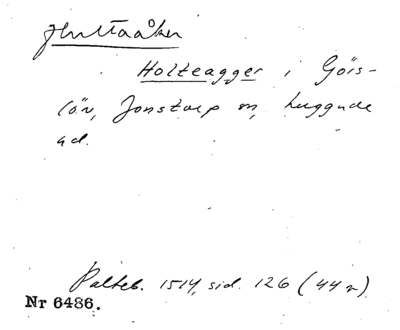 Hulta åker
Holteagger i Görs-
löv, Jonstorp sn, Luggude
hd.
Palteb. 1514, sid. 126 (44 r)
Nr 6486.